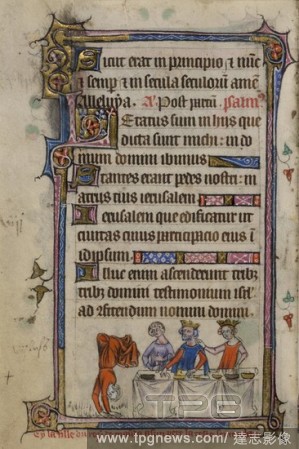 Sicut erat in principio & nunc
& semp & in secula seculorum amen
alleluya. A Post partum psalm
Letatus sum in hijs que
dicta sunt michi: in do
mum domini ibimus
Stantes erant pedes nostri: in
atrijs tuis ierusalem
Ierusalem que edificatur ut
civitas cuius participacio eius i
idipsum
Illuc enim ascenderunt tribus
tribus domini testimonium isrl
ad confitendum nomini domini.
TPG
www.tpgnews.com/ 達志影像